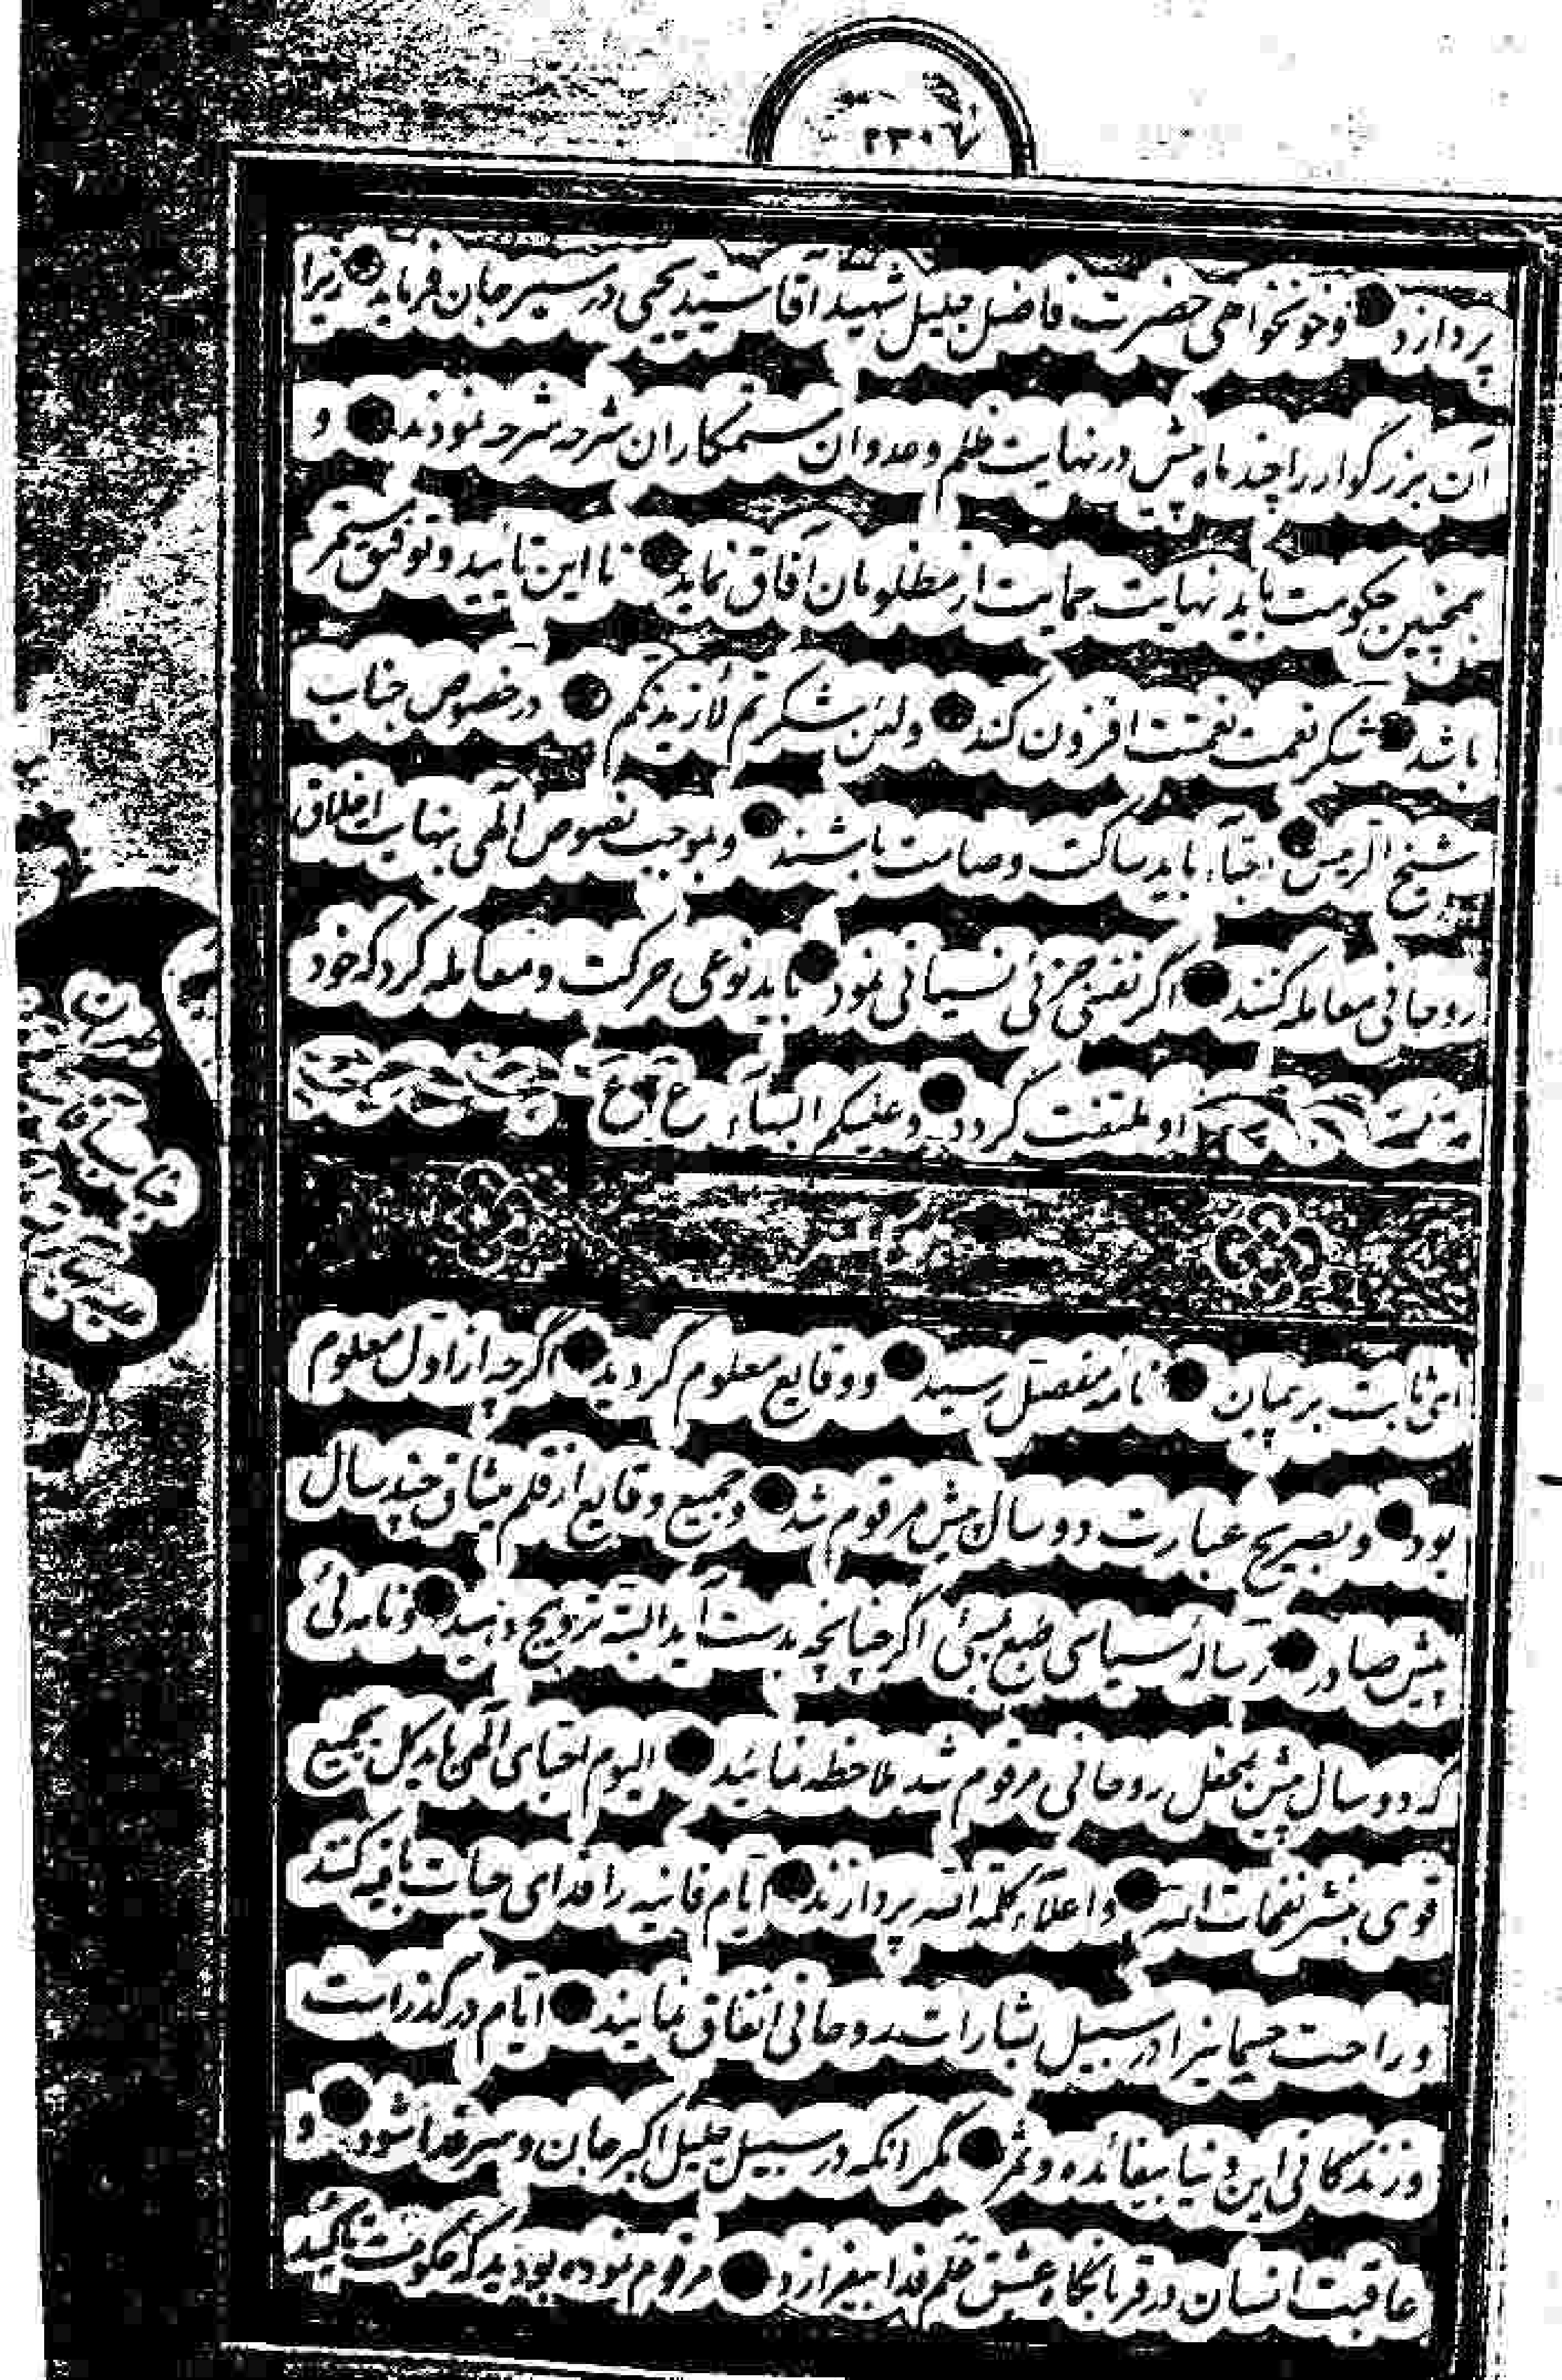 ۲۳۰۷
پردازد و خونخواهی حضرت فاضل جلیل شهید آقا سید یحیی در سیرجان فرماید زیرا
آن بزرگوار را چند ماه پیش در نهایت ظلم و عدوان ستمکاران شرحه شرحه نمودند و
همچنین حکومت باید نهایت حمایت از مظلومان آفاق نماید تا این تأیید و توفیق مستمر
باشد شکر نعمت نعمتت افزون کند ولئن شکرتم لأزیدنکم در خصوص جناب
شیخ الرئیس احباء باید ساکت و صامت باشند و بموجب نصوص الهی بنهایت اخلاق
روحانی معامله کنند اگر نفسی جزئی نسیانی نمود باید نوعی حرکت و معامله کرد که خود
او ملتفت گردد و علیکم البهآء ع ع
هو الله
جناب
ای ثابت بر پیمان نامه مفصل رسید و وقایع معلوم گردید اگرچه از اول معلوم
بود و بصریح عبارت دو سال پیش مرقوم شد و جمیع وقایع از قلم میثاق چند سال
پیش صادر رساله سیاسی طبع بمبئی اگر چنانچه بدست آید البته ترویج دهید و نامه‌ئی
که دو سال پیش بمحفل روحانی مرقوم شد ملاحظه نمائید الیوم احبای الهی باید کل بجمیع
قوی بنشر نفحات الله و اعلآء کلمة الله پردازند ایام فانیه را فدای حیات باقیه کنند
و راحت جسمانیرا در سبیل بشارات روحانی انفاق نمایند ایام در گذر است
و زندگانی این دنیا بیفائده و ثمر مگر آنکه در سبیل جلیل اکبر جان و سر فدا شود و
عاقبت انسان در قربانگاه عشق علم فدا بیفرازد مرقوم نموده بودید که حکومت تأکید